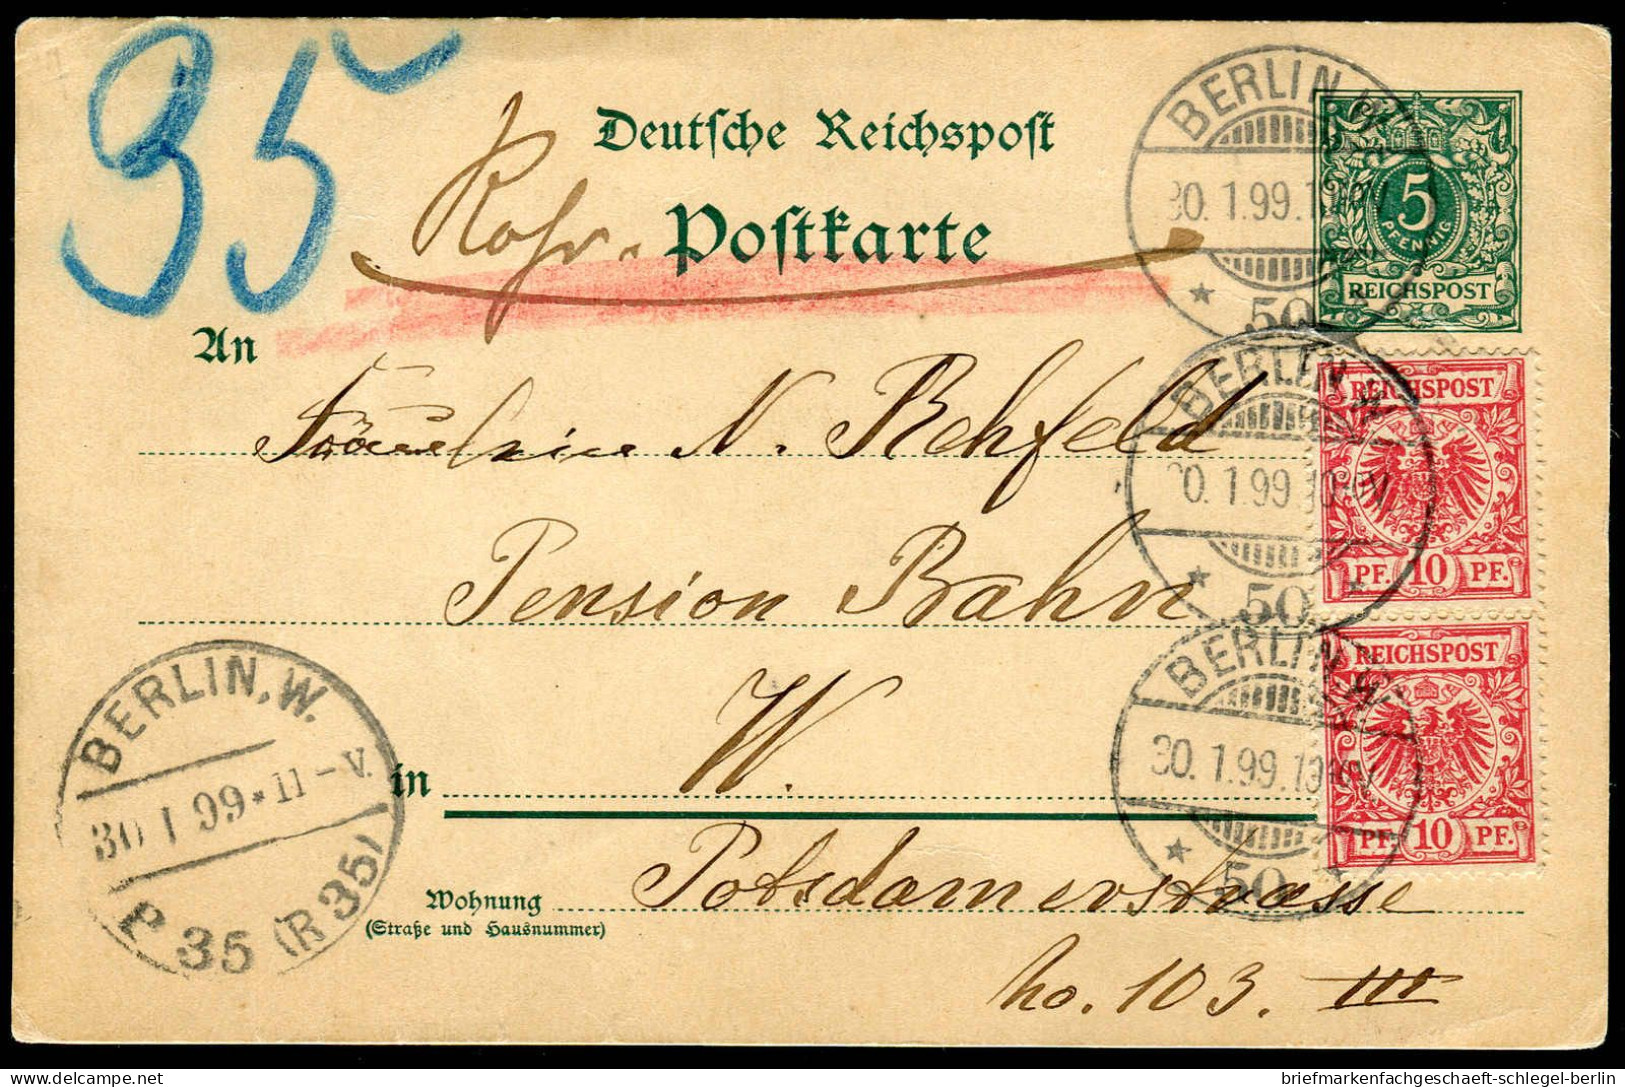 35
Deutsche Reichspost
Rohr-
Postkarte
An
Fräulein N. Rehfeld
Pension Bahn
in W.
Wohnung Potsdamerstrasse
(Straße und Hausnummer)
No. 103. III
BERLIN W
30.1.99.10-11V.
50
5
PFENNIG
REICHSPOST
BERLIN W
0.1.99.10-11V.
50
REICHSPOST
PF. 10 PF.
BERLIN W
30.1.99.10-11V.
50
REICHSPOST
PF. 10 PF.
BERLIN, W.
30 1 99 * 11 - V.
P 35 (R 35)
briefmarkenfachgeschaeft-schlegel-berlin